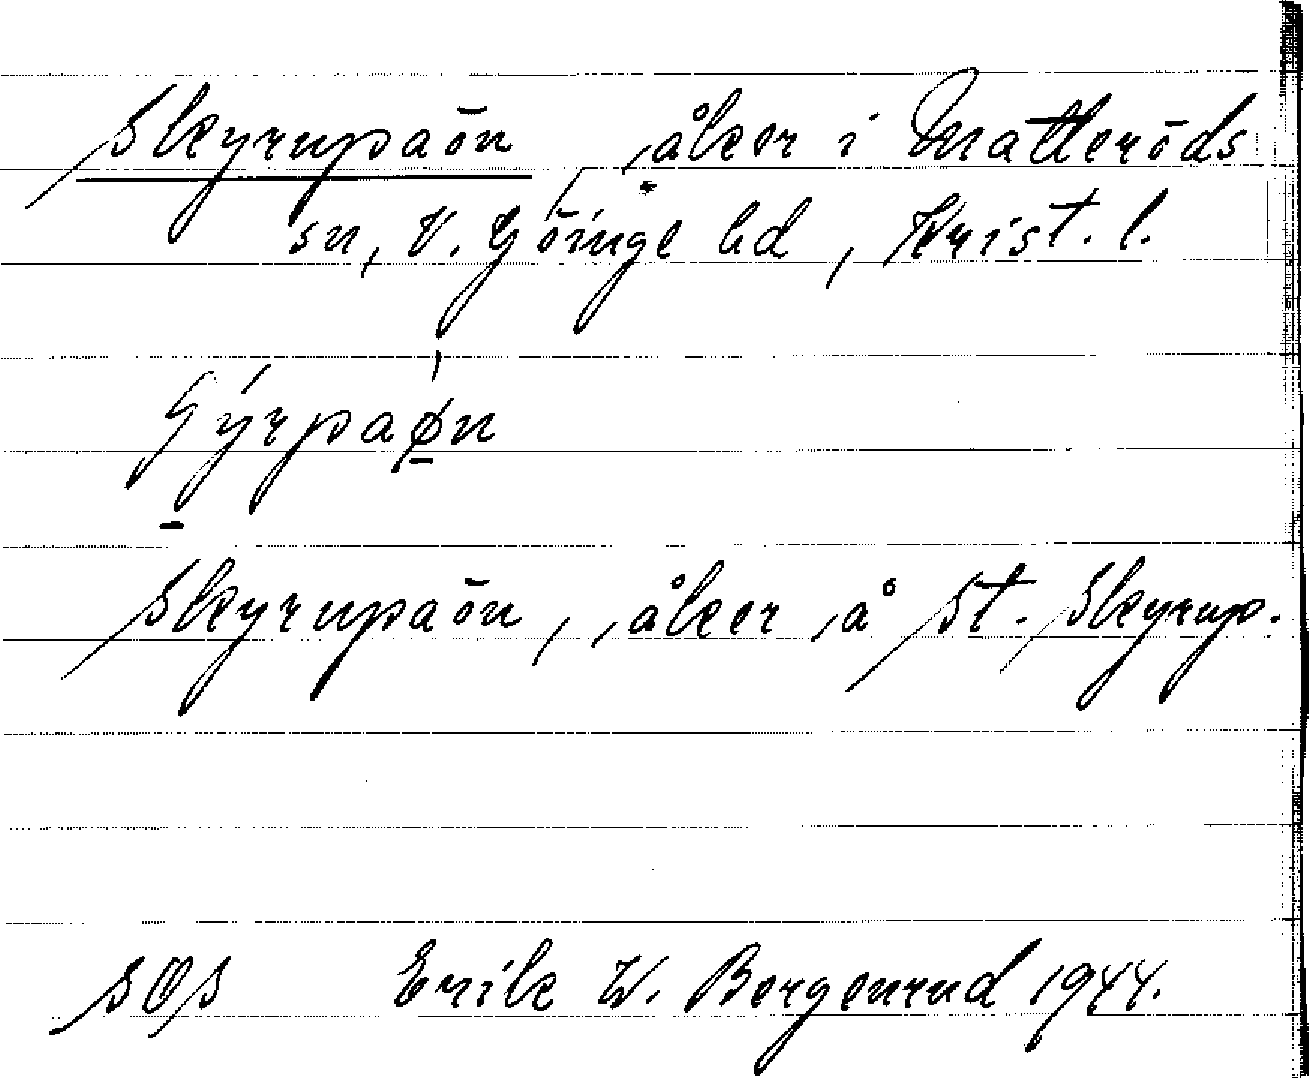 Skyrupaön, åker i Matteröds
sn, V. Göinge hd, Krist. l.
Skyrupaön, åker å St. Skyrup.
SOS Erik W. Bergenrud 1944.